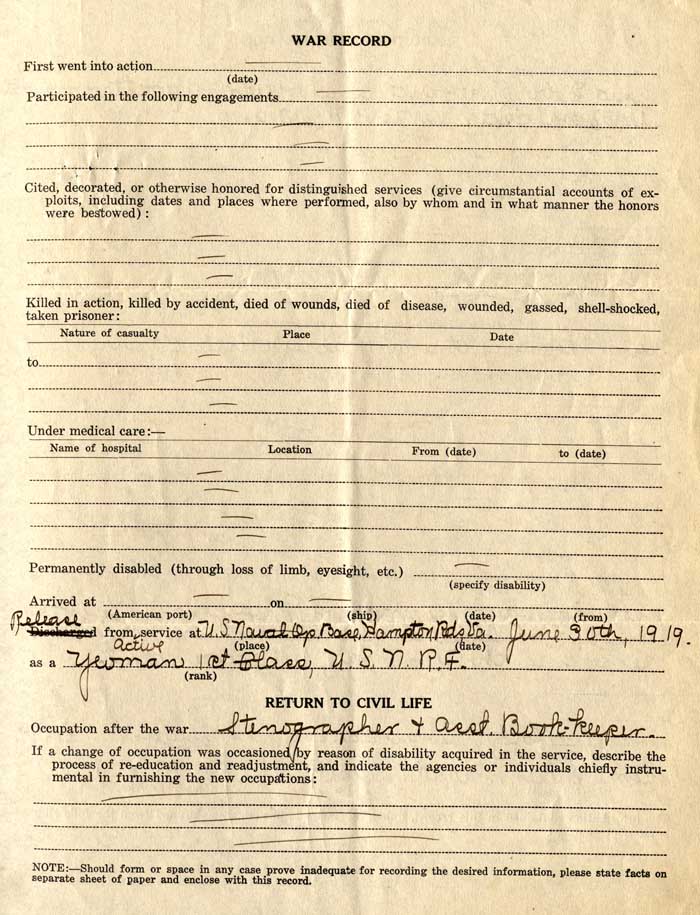 WAR RECORD
First went into action
(date)
Participated in the following engagements
Cited, decorated, or otherwise honored for distinguished services (give circumstantial accounts of ex-
ploits, including dates and places where performed, also by whom and in what manner the honors
were bestowed) :
Killed in action, killed by accident, died of wounds, died of disease, wounded, gassed, shell-shocked,
taken prisoner:
Nature of casualty Place Date
to
Under medical care:—
Name of hospital Location From (date) to (date)
Permanently disabled (through loss of limb, eyesight, etc.)
(specify disability)
Arrived at on
(American port) (ship) (date) (from)
Release
Discharged from service at U.S. Naval Op. Base, Hampton Rds Va. June 30th, 1919.
Active (place) (date)
as a Yeoman 1st Class, U. S. N. R. F.
(rank)
RETURN TO CIVIL LIFE
Occupation after the war Stenographer & Asst. Book-keeper.
If a change of occupation was occasioned by reason of disability acquired in the service, describe the
process of re-education and readjustment, and indicate the agencies or individuals chiefly instru-
mental in furnishing the new occupations:
NOTE:—Should form or space in any case prove inadequate for recording the desired information, please state facts on
separate sheet of paper and enclose with this record.